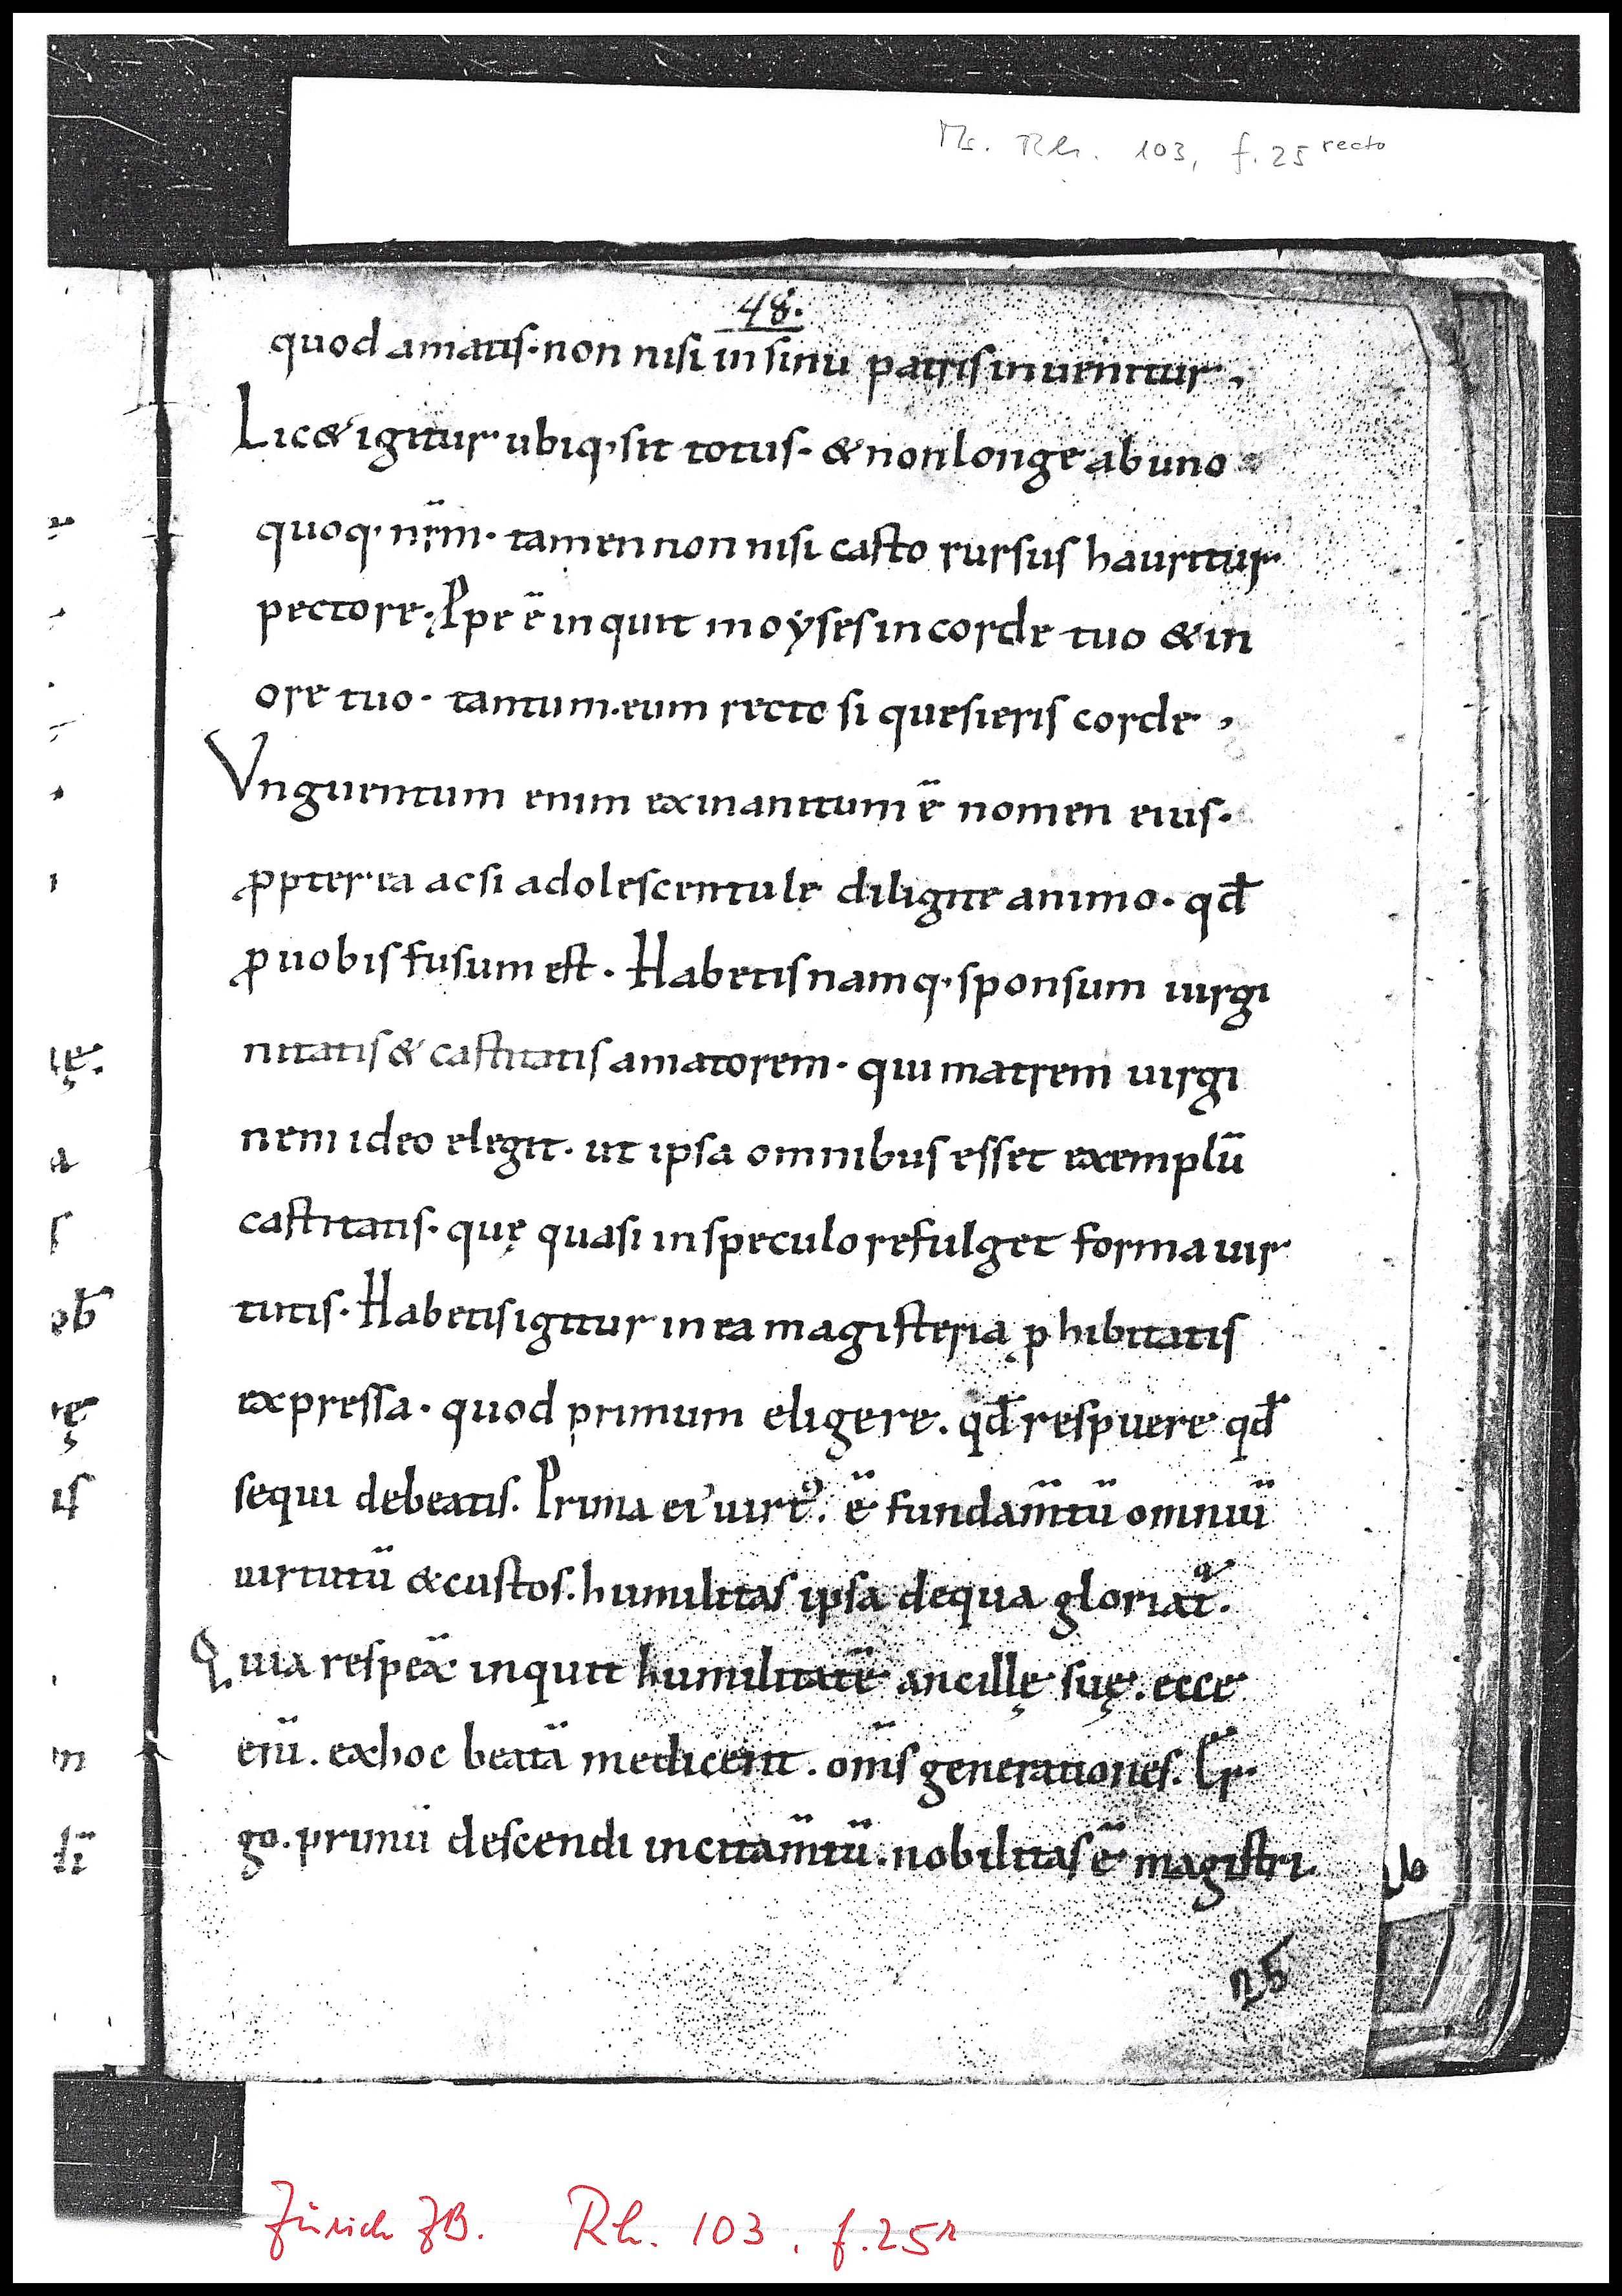 Ms. Rh. 103, f. 25 recto
48.
quod amatis· non nisi in sinu patris inuenitur.
Lic& igitur ubiq· sit totus· & non longe ab uno
quoq· nr̄m· tamen non nisi casto rursus hauritur
pectore· Ppe ē inquit moẏses in corde tuo & in
ore tuo· tantum· eum recto si quesieris corde,
Vnguentum enim exinanitum ē nomen eius·
ꝓpterea ac si adolescentule diligite animo· qđ
ꝓ uobis fusum est· Habetis namq· sponsum uirgi
nitatis & castitatis amatorem· qui matrem uirgi
nem ideo elegit· ut ipsa omnibus esset exemplū
castitatis· quę quasi in speculo refulget forma uir
tutis· Habetis igitur in ea magisteria ꝓhibitatis
expressa· quod primum eligere. qđ respuere qđ
sequi debeatis. Prima ei' uirt᾽. ē fundam̄tū omniū
uirtutū & custos. humilitas ipsa de qua gloriat᷑.
Quia respex̄ inquit humilitatē ancillę suę. ecce
enī. ex hoc beatā me dicent. om̄s generationes. Er
go. primū descendi incitam̄tū. nobilitas ē magistri.
25
Zürich ZB. Rh. 103, f. 25r